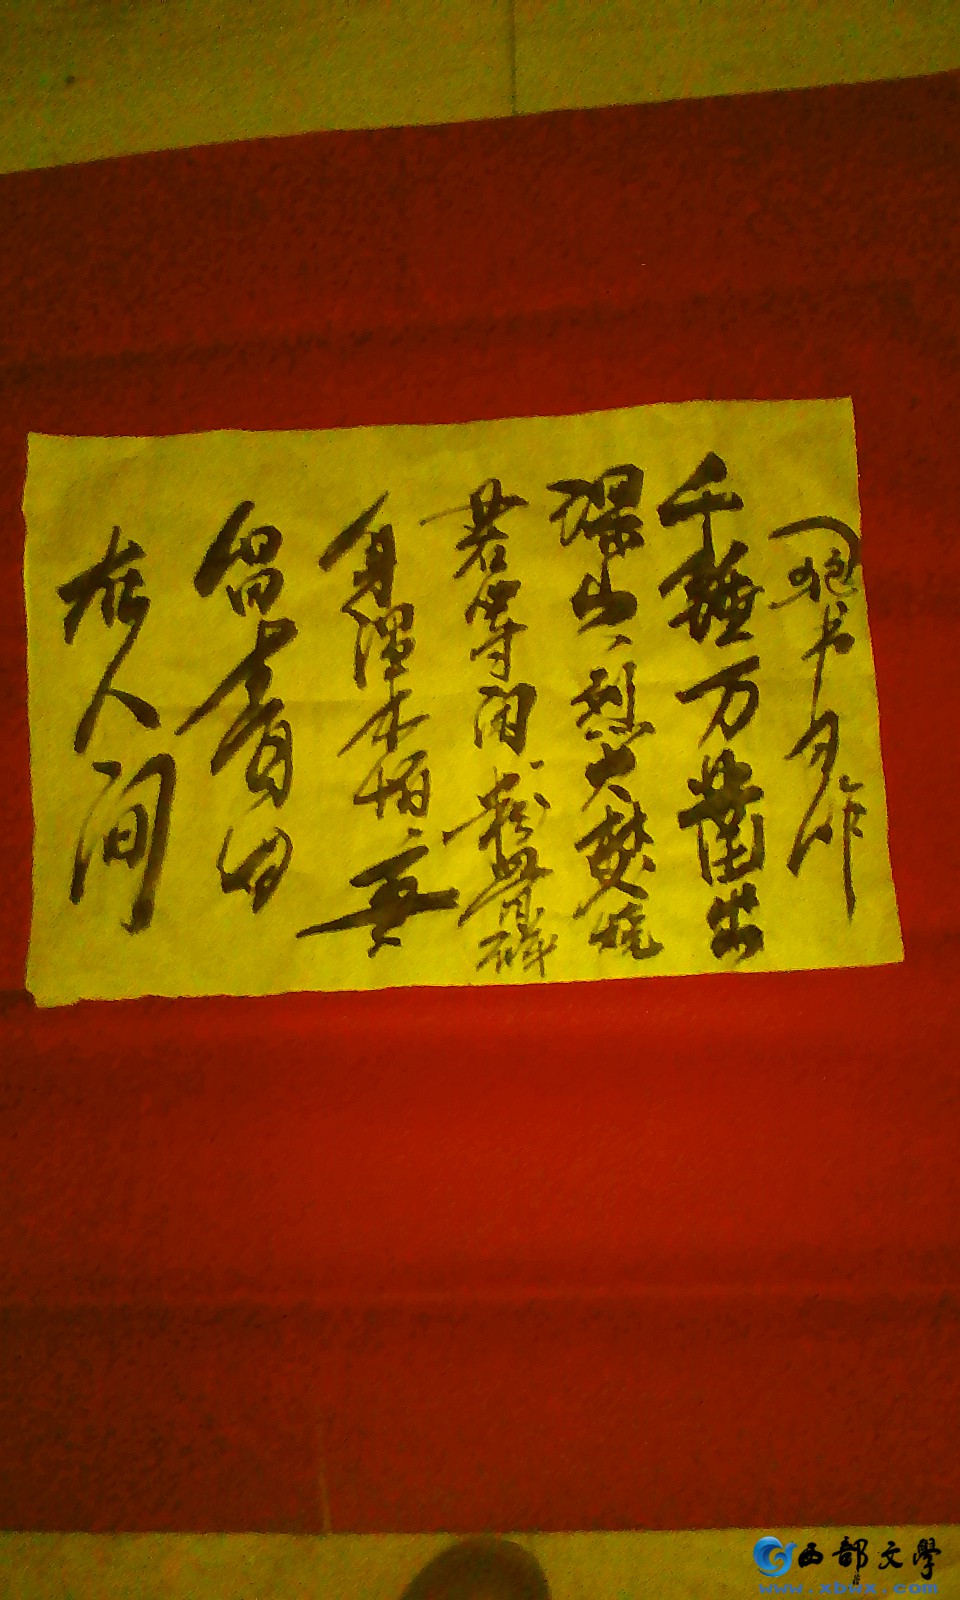 书习作
千錘万凿出
深山、烈火焚烧
若等闲、粉骨碎
身渾不怕、要
留青白
在人间
西部文學
www.xbwx.com